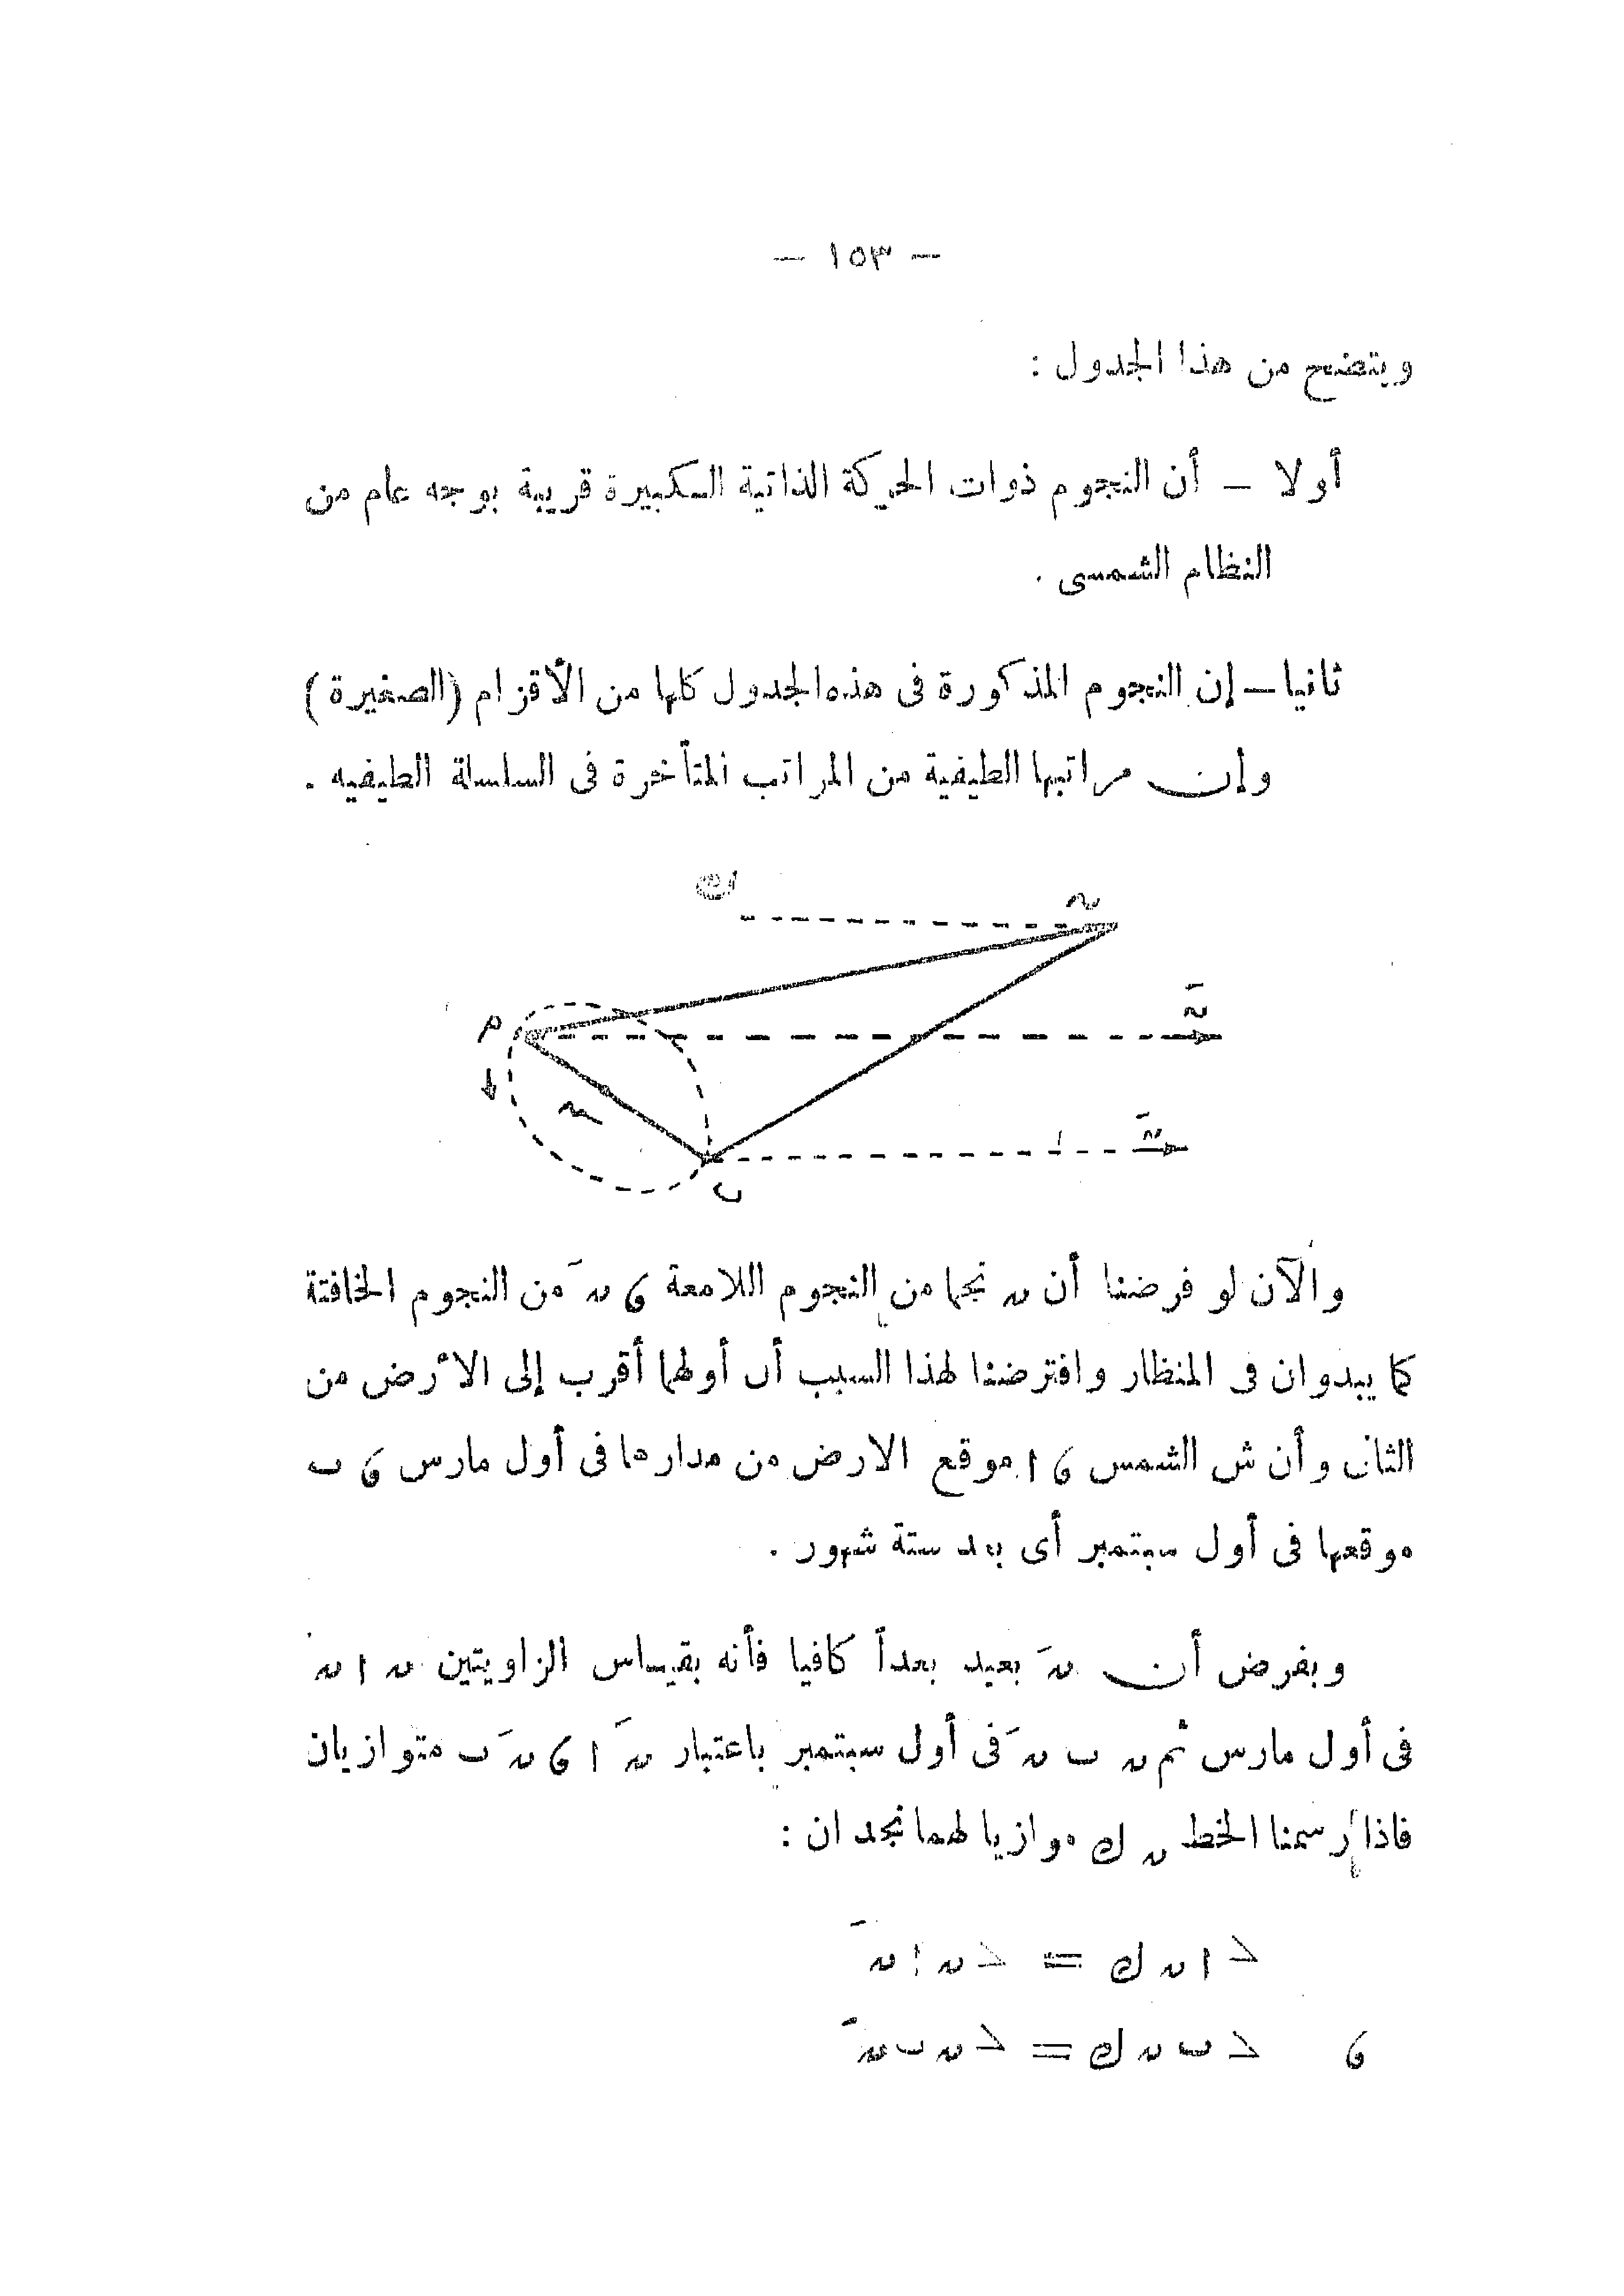 — ١٥٣ —
ويتضح من هذا الجدول :
أولا — أن النجوم ذوات الحركة الذاتية الكبيرة قريبة بوجه عام من
النظام الشمسى .
ثانيا — إن النجوم المذكورة فى هذه الجدول كلها من الأقزام (الصغيرة)
وإن مراتبها الطيفية من المراتب المتأخرة فى السلسلة الطيفيه .
ك
ن
نَ
م
نَ
ب
والآن لو فرضنا أن ن نجما من النجوم اللامعة ، نَ من النجوم الخافتة
كما يبدوان فى المنظار وافترضنا لهذا السبب أن أولهما أقرب إلى الأرض من
الثانى وأن ش الشمس ، ا موقع الارض من مدارها فى أول مارس ، ب
موقعها فى أول سبتمبر أى بعد ستة شهور .
وبفرض أن نَ بعيد بعداً كافيا فأنه بقياس الزاويتين ن ا نَ
فى أول مارس ثم ن ب نَ فى أول سبتمبر باعتبار نَ ا ، نَ ب متوازيان
فاذا رسمنا الخط ن ك موازيا لهما نجد ان :
> ا ن ك = > ن ا نَ
، > ب ن ك = > ن ب نَ